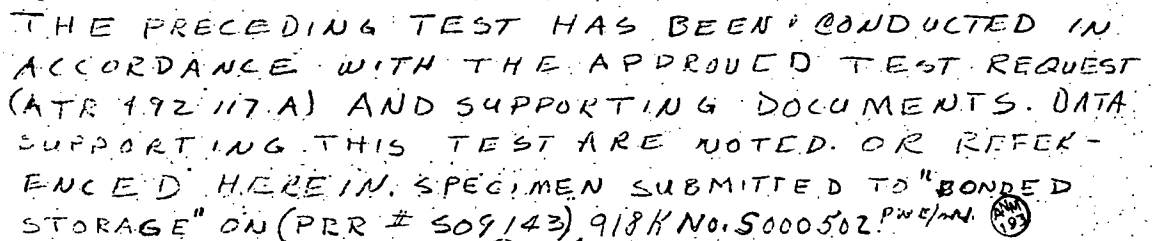 THE PRECEDING TEST HAS BEEN CONDUCTED IN
ACCORDANCE WITH THE APPROVED TEST REQUEST
(ATR 492117.A) AND SUPPORTING DOCUMENTS. DATA
SUPPORTING THIS TEST ARE NOTED. OR REFER-
ENCED HEREIN. SPECIMEN SUBMITTED TO "BONDED
STORAGE" ON (PRR # 509143) 918K NO. S000502.